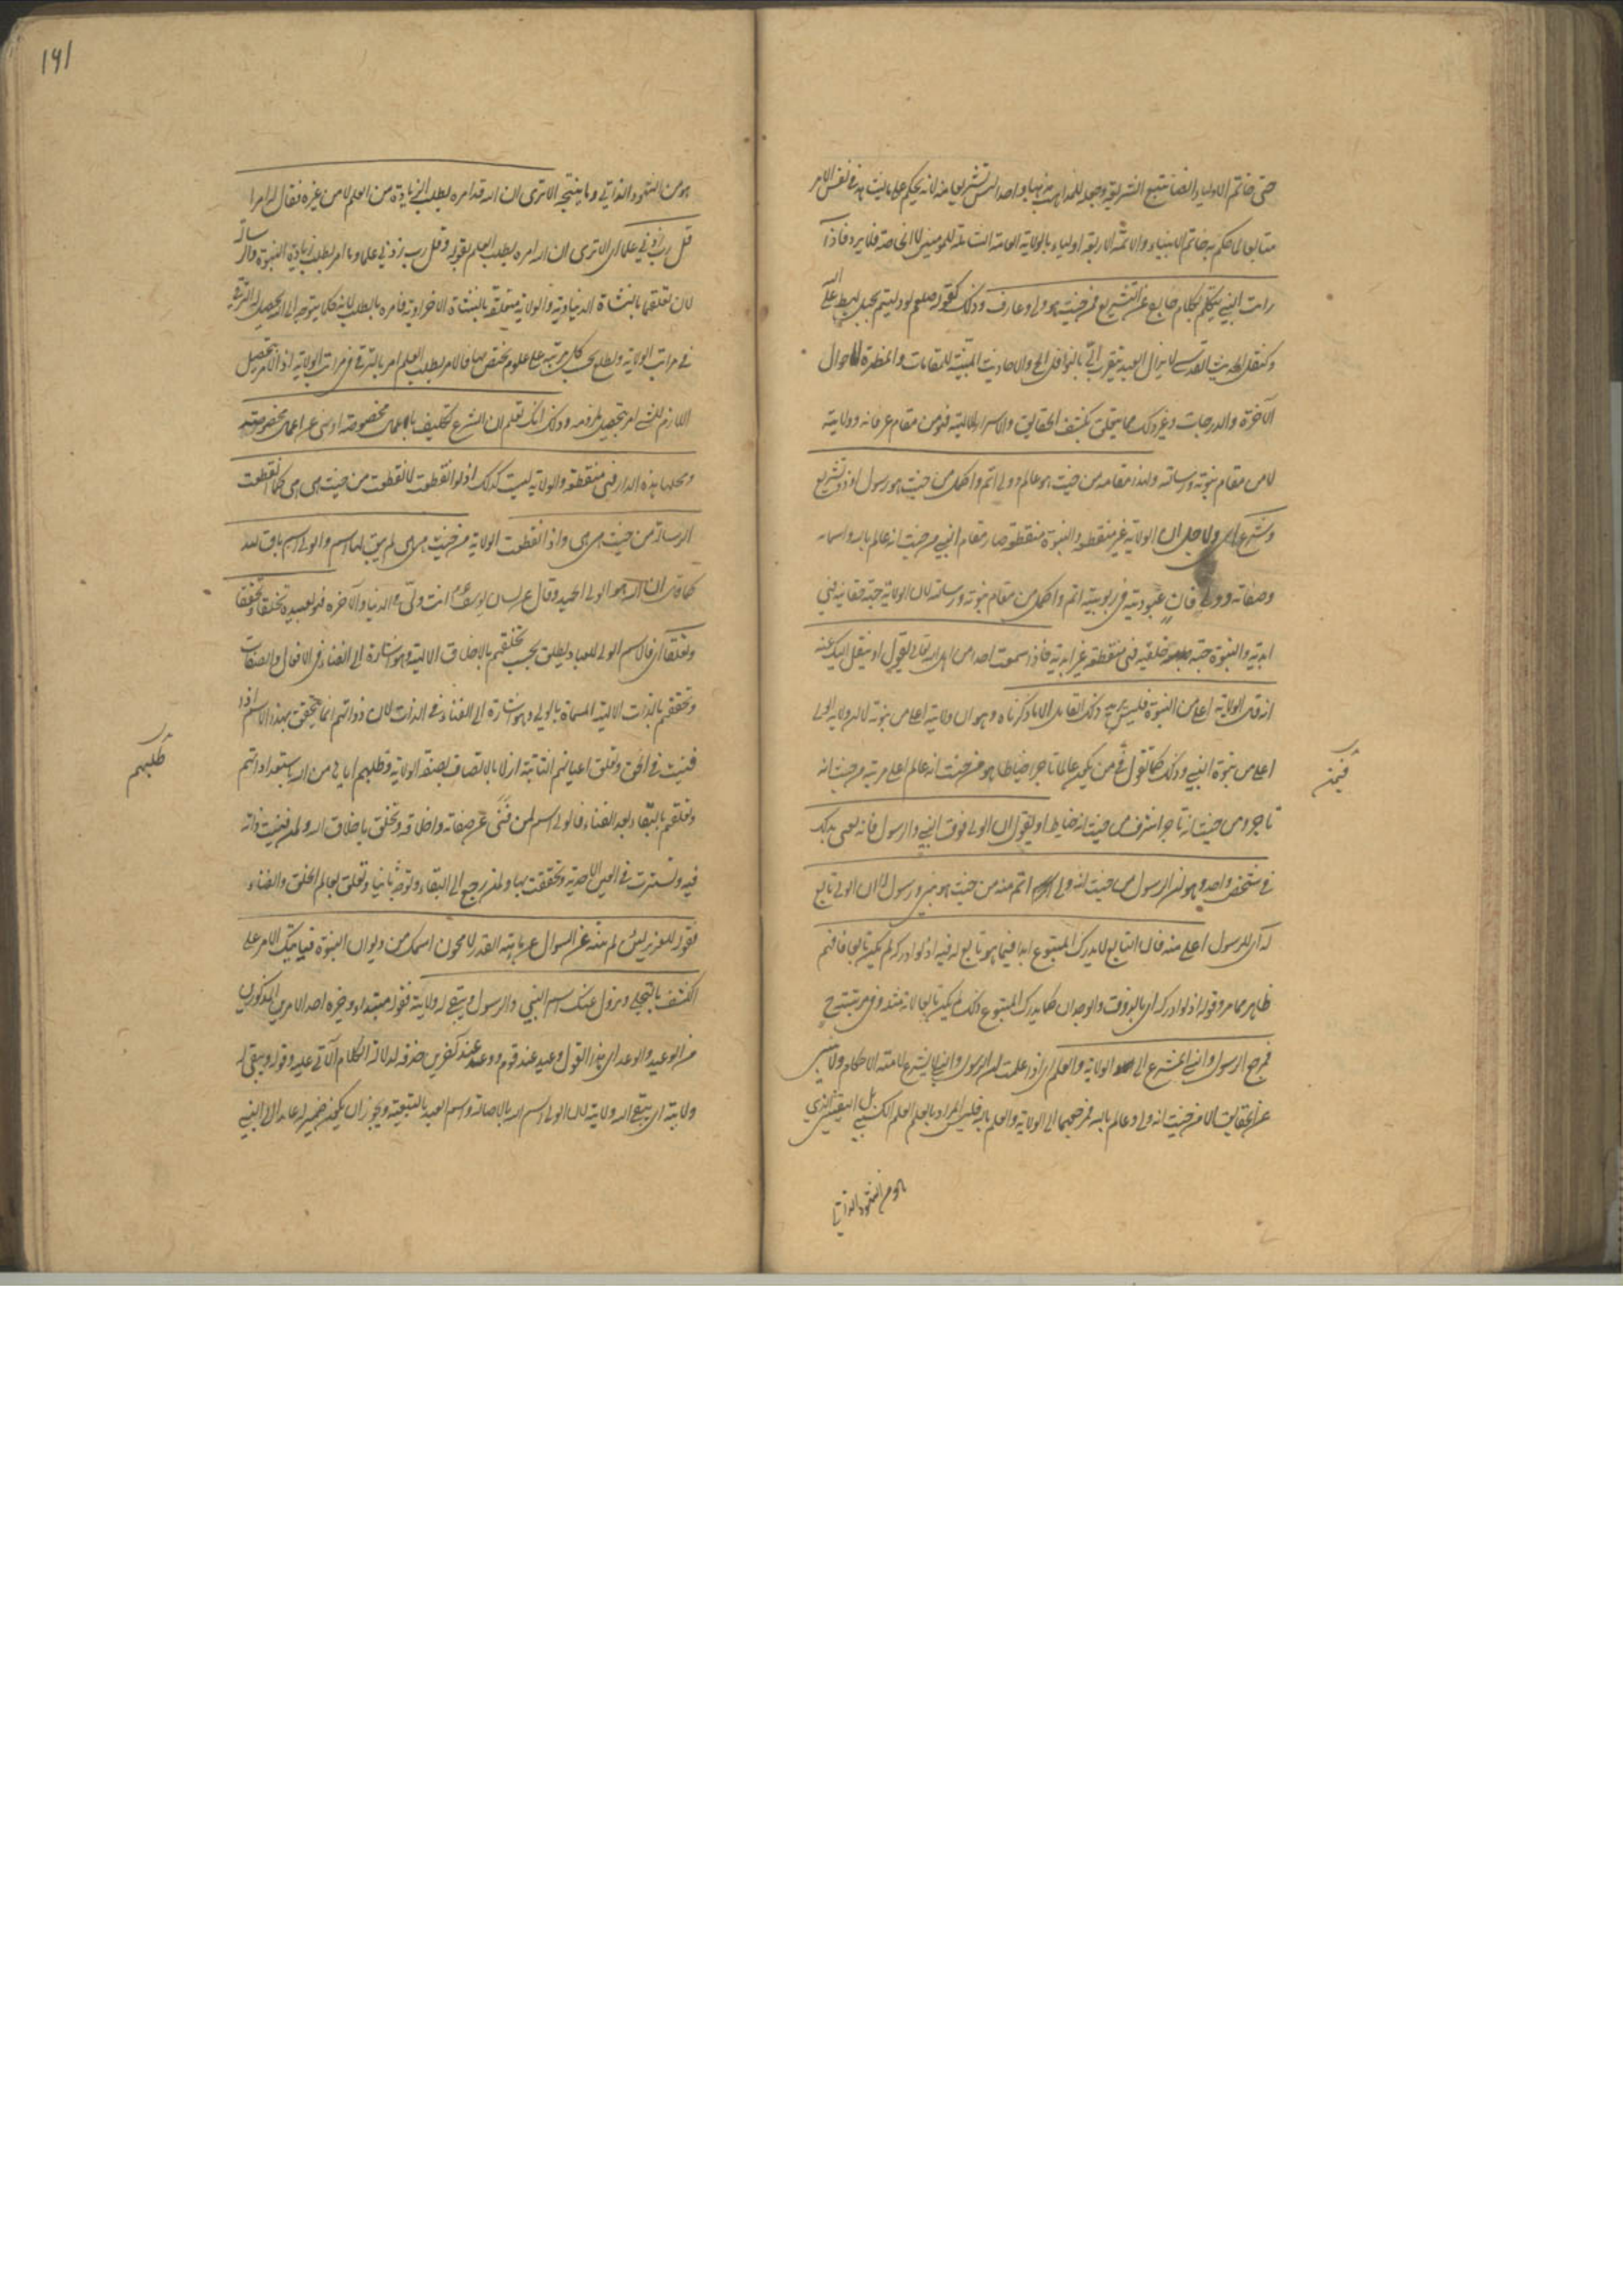 حتى خاتم الاولياء ايضا متبع الشريعة وجعله للمذاهب مذهبا واحدا ليس تشريعا منه لانه يحكم على ما يشاهده في نفس الامر
متابعا لما حكم به خاتم الانبياء والائمة الاربعة اولياء بالولاية العامة الشاملة للمومنين لا الخاصة فلا يرد فاذا
رايت النبي يتكلم بكلام خارج عن التشريع فمن حيث هو ولي وعارف وذلك كقوله صلعم لو دليتم بحبل لهبط على الله
وكنقل الحديث القدسي لا يزال العبد يتقرب الي بالنوافل الخ والاحاديث المبينة للمقامات والمظهرة لاحوال
الآخرة والدرجات وغير ذلك مما يتعلق بكشف الحقايق والاسرار الالهية فهو من مقام عرفانه وولايته
لا من مقام نبوته ورسالته ولهذا مقامه من حيث هو عالم وولي اتم واكمل من حيث هو رسول او ذو تشريع
وشرع اى ولاجل ان الولاية غير منقطعة والنبوة منقطعة صار مقام النبي من حيث انه عالم بالله واسمائه
وصفاته وولي فان عبوديته في ربوبيته اتم واكمل من مقام نبوته ورسالته لان الولاية جهة حقانية فهي
ابدية والنبوة جهة خلقية فهي منقطعة غير ابدية فاذا سمعت احدا من اهل الله تعالى يقول او ينقل اليك عنه
انه قال الولاية اعلى من النبوة فليس يريد ذلك القايل الا ما ذكرناه وهو ان ولاية النبي اعلى من نبوته لا ان ولاية الولي
اعلى من نبوة النبي وذلك كما تقول في من يكون عالما تاجرا خياطا هو من حيث انه عالم اعلى مرتبة من حيث انه
فيمن
تاجر ومن حيث انه تاجر اشرف من حيث انه خياط او يقول ان الولي فوق النبي والرسول فانه يعني بذلك
في شخص واحد وهو ان الرسول من حيث انه ولي اتم منه من حيث هو نبي ورسول لا ان الولي تابع
له اى للرسول اعلى منه فان التابع لا يدرك المتبوع ابدا فيما هو تابع له فيه اذ لو ادركه لم يكن تابعا فافهم
ظاهر مما مر وقوله اذ لو ادركه اى بالذوق والوجدان كما يدرك المتبوع ذلك لم يكن تابعا لانه مثله وفي مرتبته ح
فمرجع الرسول والنبي المشرع الى الولاية والعلم اى اذا علمت ان الرسول والنبي لا يشرع لامته الاحكام ولا ينبئ
عن الحقايق الا من حيث انه ولي وعالم بالله فمرجعهما الى الولاية والعلم بالله فليس المراد بالعلم العلم الكسبي بل اليقيني الذي
هو من الشهود الذاتي
١٩١
هو من الشهود الذاتي وما ينتجه الا ترى ان الله قد امره بطلب الزيادة من العلم لا من غيره فقال له امرا
قل رب زدني علما اى الا ترى ان الله امره بطلب العلم بقوله وقل رب زدني علما وما امر بطلب زيادة النبوة والرسالة
لان تعلقهما بالنشاة الدنياوية والولاية متعلقة بالنشاة الاخراوية فامره بالطلب لانه كلما يتوجه الى الله يحصل له الترقي
في مراتب الولاية ويطلع بحسب كل مرتبة على علوم يختص بها فالامر بطلب العلم امر بالترقي في مراتب الولاية اذ الامر بتحصيل
اللازم للشئ امر بتحصيل ملزومه وذلك انك تعلم ان الشرع تكليف باعمال مخصوصة او نهي عن اعمال مخصوصة
ومحلها هذه الدار فهي منقطعة والولاية ليست كذلك اذ لو انقطعت لانقطعت من حيث هي هي كما انقطعت
الرسالة من حيث هي هي واذا انقطعت الولاية من حيث هي هي لم يبق لها اسم والولي اسم باق لله
كما قال ان الله هو الولي الحميد وقال عن لسان يوسف عم انت وليي في الدنيا والآخرة فهو لعبيده تخلقا وتحققا
وتعلقا اى فالاسم الولي للعباد يطلق بحسب تخلقهم بالاخلاق الالهية وهو اشارة الى الفناء في الافعال والصفات
وتحققهم بالذات الالهية المسماة بالولي وهو اشارة الى الفناء في الذات لان ذواتهم انما يتحقق بهذا الاسم اذا
فنيت في الحق وتعلق اعيانهم الثابتة ازلا بالاتصاف بصفة الولاية وطلبهم اياها من الله باستعداداتهم
طلبهم
وتعلقهم بالبقاء بعد الفناء فالولي اسم لمن فني عن صفاته واخلاقه وتخلق باخلاق الله ولمن فنيت ذاته
فيه وتسترت في العين الاحدية وتحققت بها ولمن رجع الى البقاء وتوجه ثانيا وتعلق بعالم الخلق والفناء
فقوله للعزير لئن لم تنته عن السؤال عن ماهية القدر لامحون اسمك من ديوان النبوة فيأتيك الامر على
الكشف بالتجلي ويزول عنك اسم النبي والرسول ويبقى له ولايته فقوله مبتداء وخبره احد الامرين المذكورين
من الوعيد والوعد اى هذا القول وعيد عند قوم ووعد عند آخرين حذفه لدلالة الكلام الآتي عليه وقوله ويبقى له
ولايته اى يبقى لله ولايته لان الولي اسم الله بالاصالة واسم العبد بالتبعية ويجوز ان يكون ضمير له عايدا الى النبي